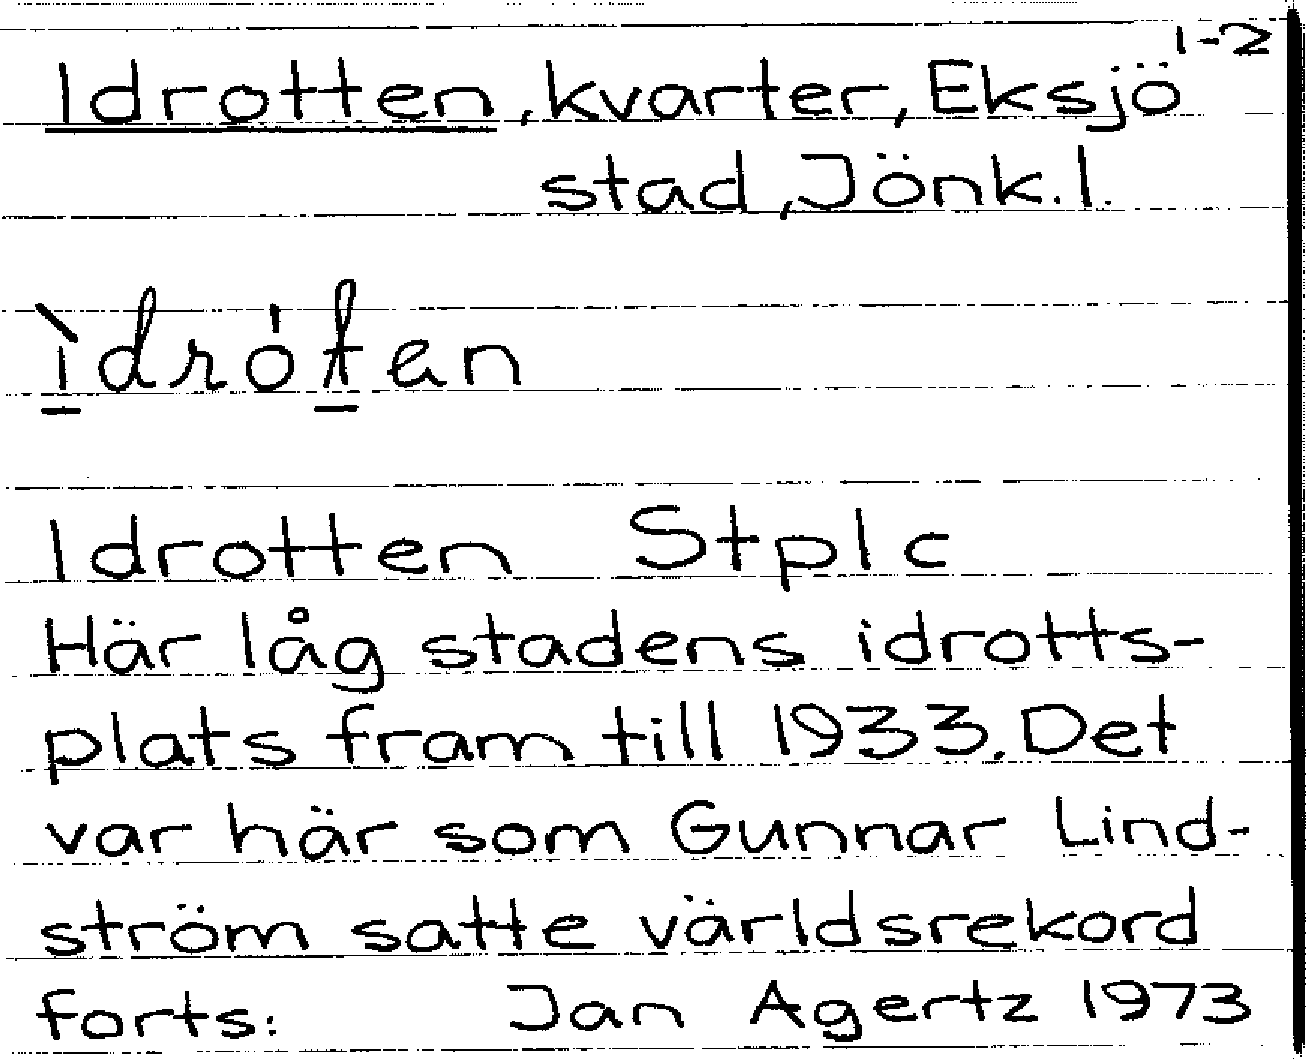 1-2
Idrotten, kvarter, Eksjö
stad, Jönk. l.
ìdrótan
Idrotten Stplc
Här låg stadens idrotts-
plats fram till 1933. Det
var här som Gunnar Lind-
ström satte världsrekord
forts: Jan Agertz 1973